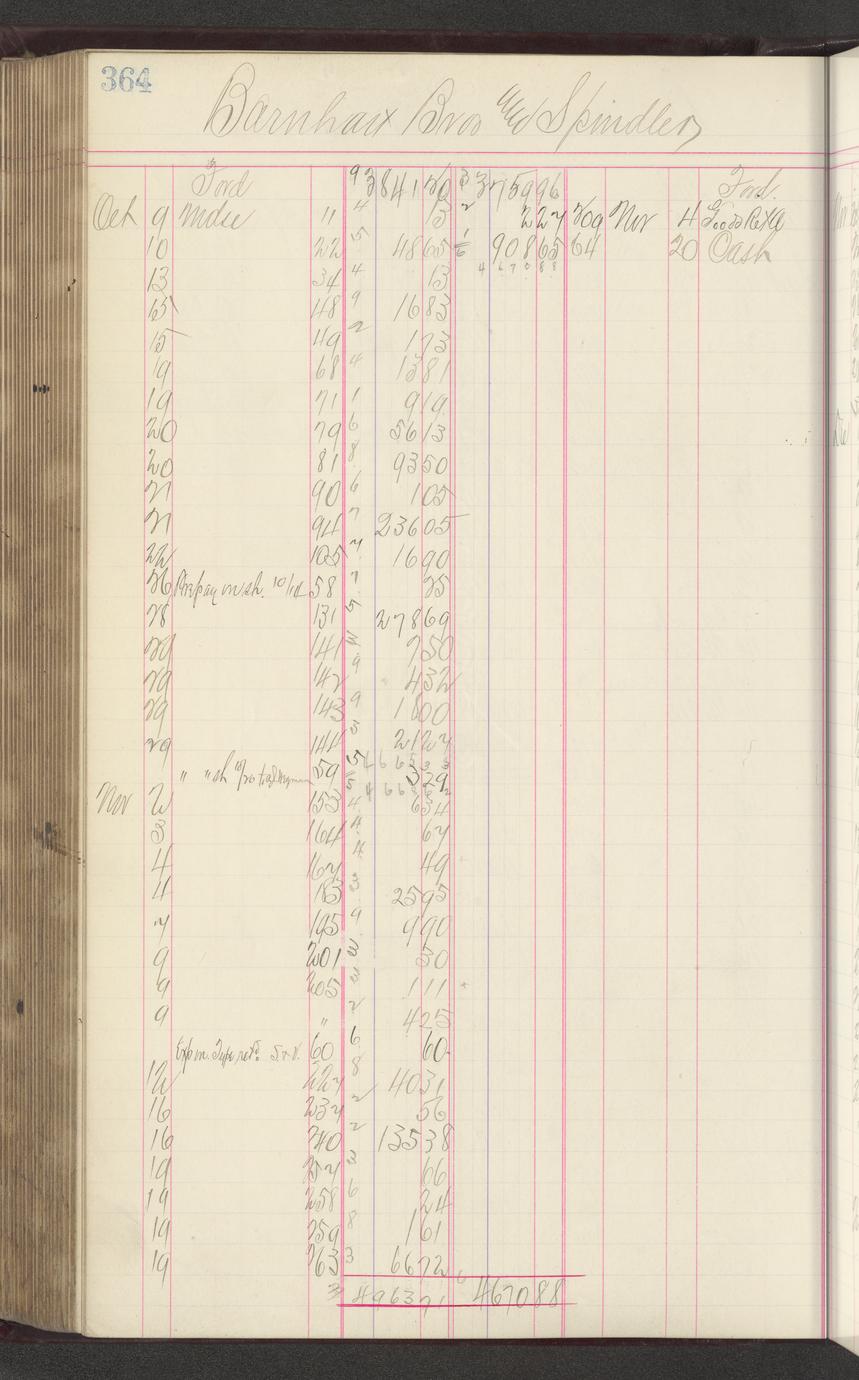 364
Barnhart Bros and Spindler
Ford 9 384170 3 375996 Ford.
Oct 9 Mdse " 4 13 2 227 209 Nov 4 Goods Retd
10 22 5 4865 90865 64 20 Cash
13 34 4 13 467088
15 48 9 1683
15 49 2 173
19 68 4 1381
19 71 1 919
20 79 6 5613
20 81 8 9350
21 90 6 105
21 94 7 23605
22 105 7 1690
26 Prepay on sh. 10/14 58 7 25
28 131 5 27869
29 141 3 750
29 142 9 432
29 143 9 1800
29 144 3 2127
" " sh 59 5 329
Nov 2 153 4 634
3 164 4 67
4 167 4 49
4 183 3 2595
7 195 9 990
9 201 3 30
9 205 3 111
9 " 2 425
Exp on Type retd. 60 6 60
12 227 8 4031
16 237 2 56
16 240 2 13538
19 257 3 66
19 258 6 24
19 259 8 161
19 263 3 6672
3 496371 6 467088